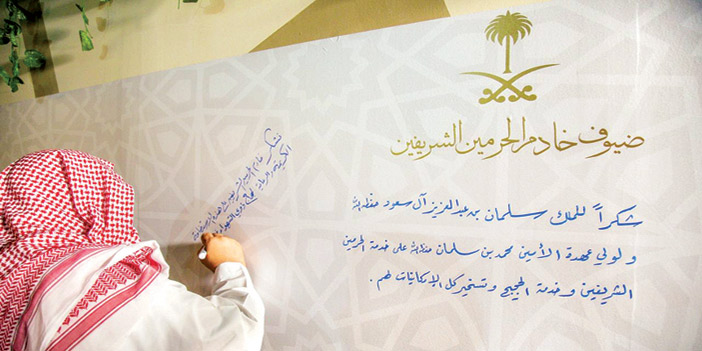 ضيوف خادم الحرمين الشريفين
شكراً للملك سلمان بن عبدالعزيز آل سعود حفظه الله
و لولي عهدة الأمين محمد بن سلمان حفظه الله على خدمة الحرمين
الشريفين و خدمة الحجيج و تسخير كل الإمكانيات لهم .
نشكر خادم الحرمين الشريفين